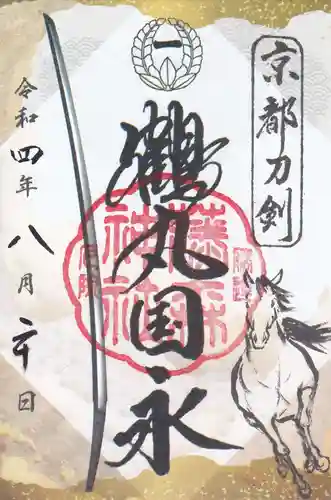 京都刀剣
一
鶴丸国永
藤森神社
令和四年八月二十日